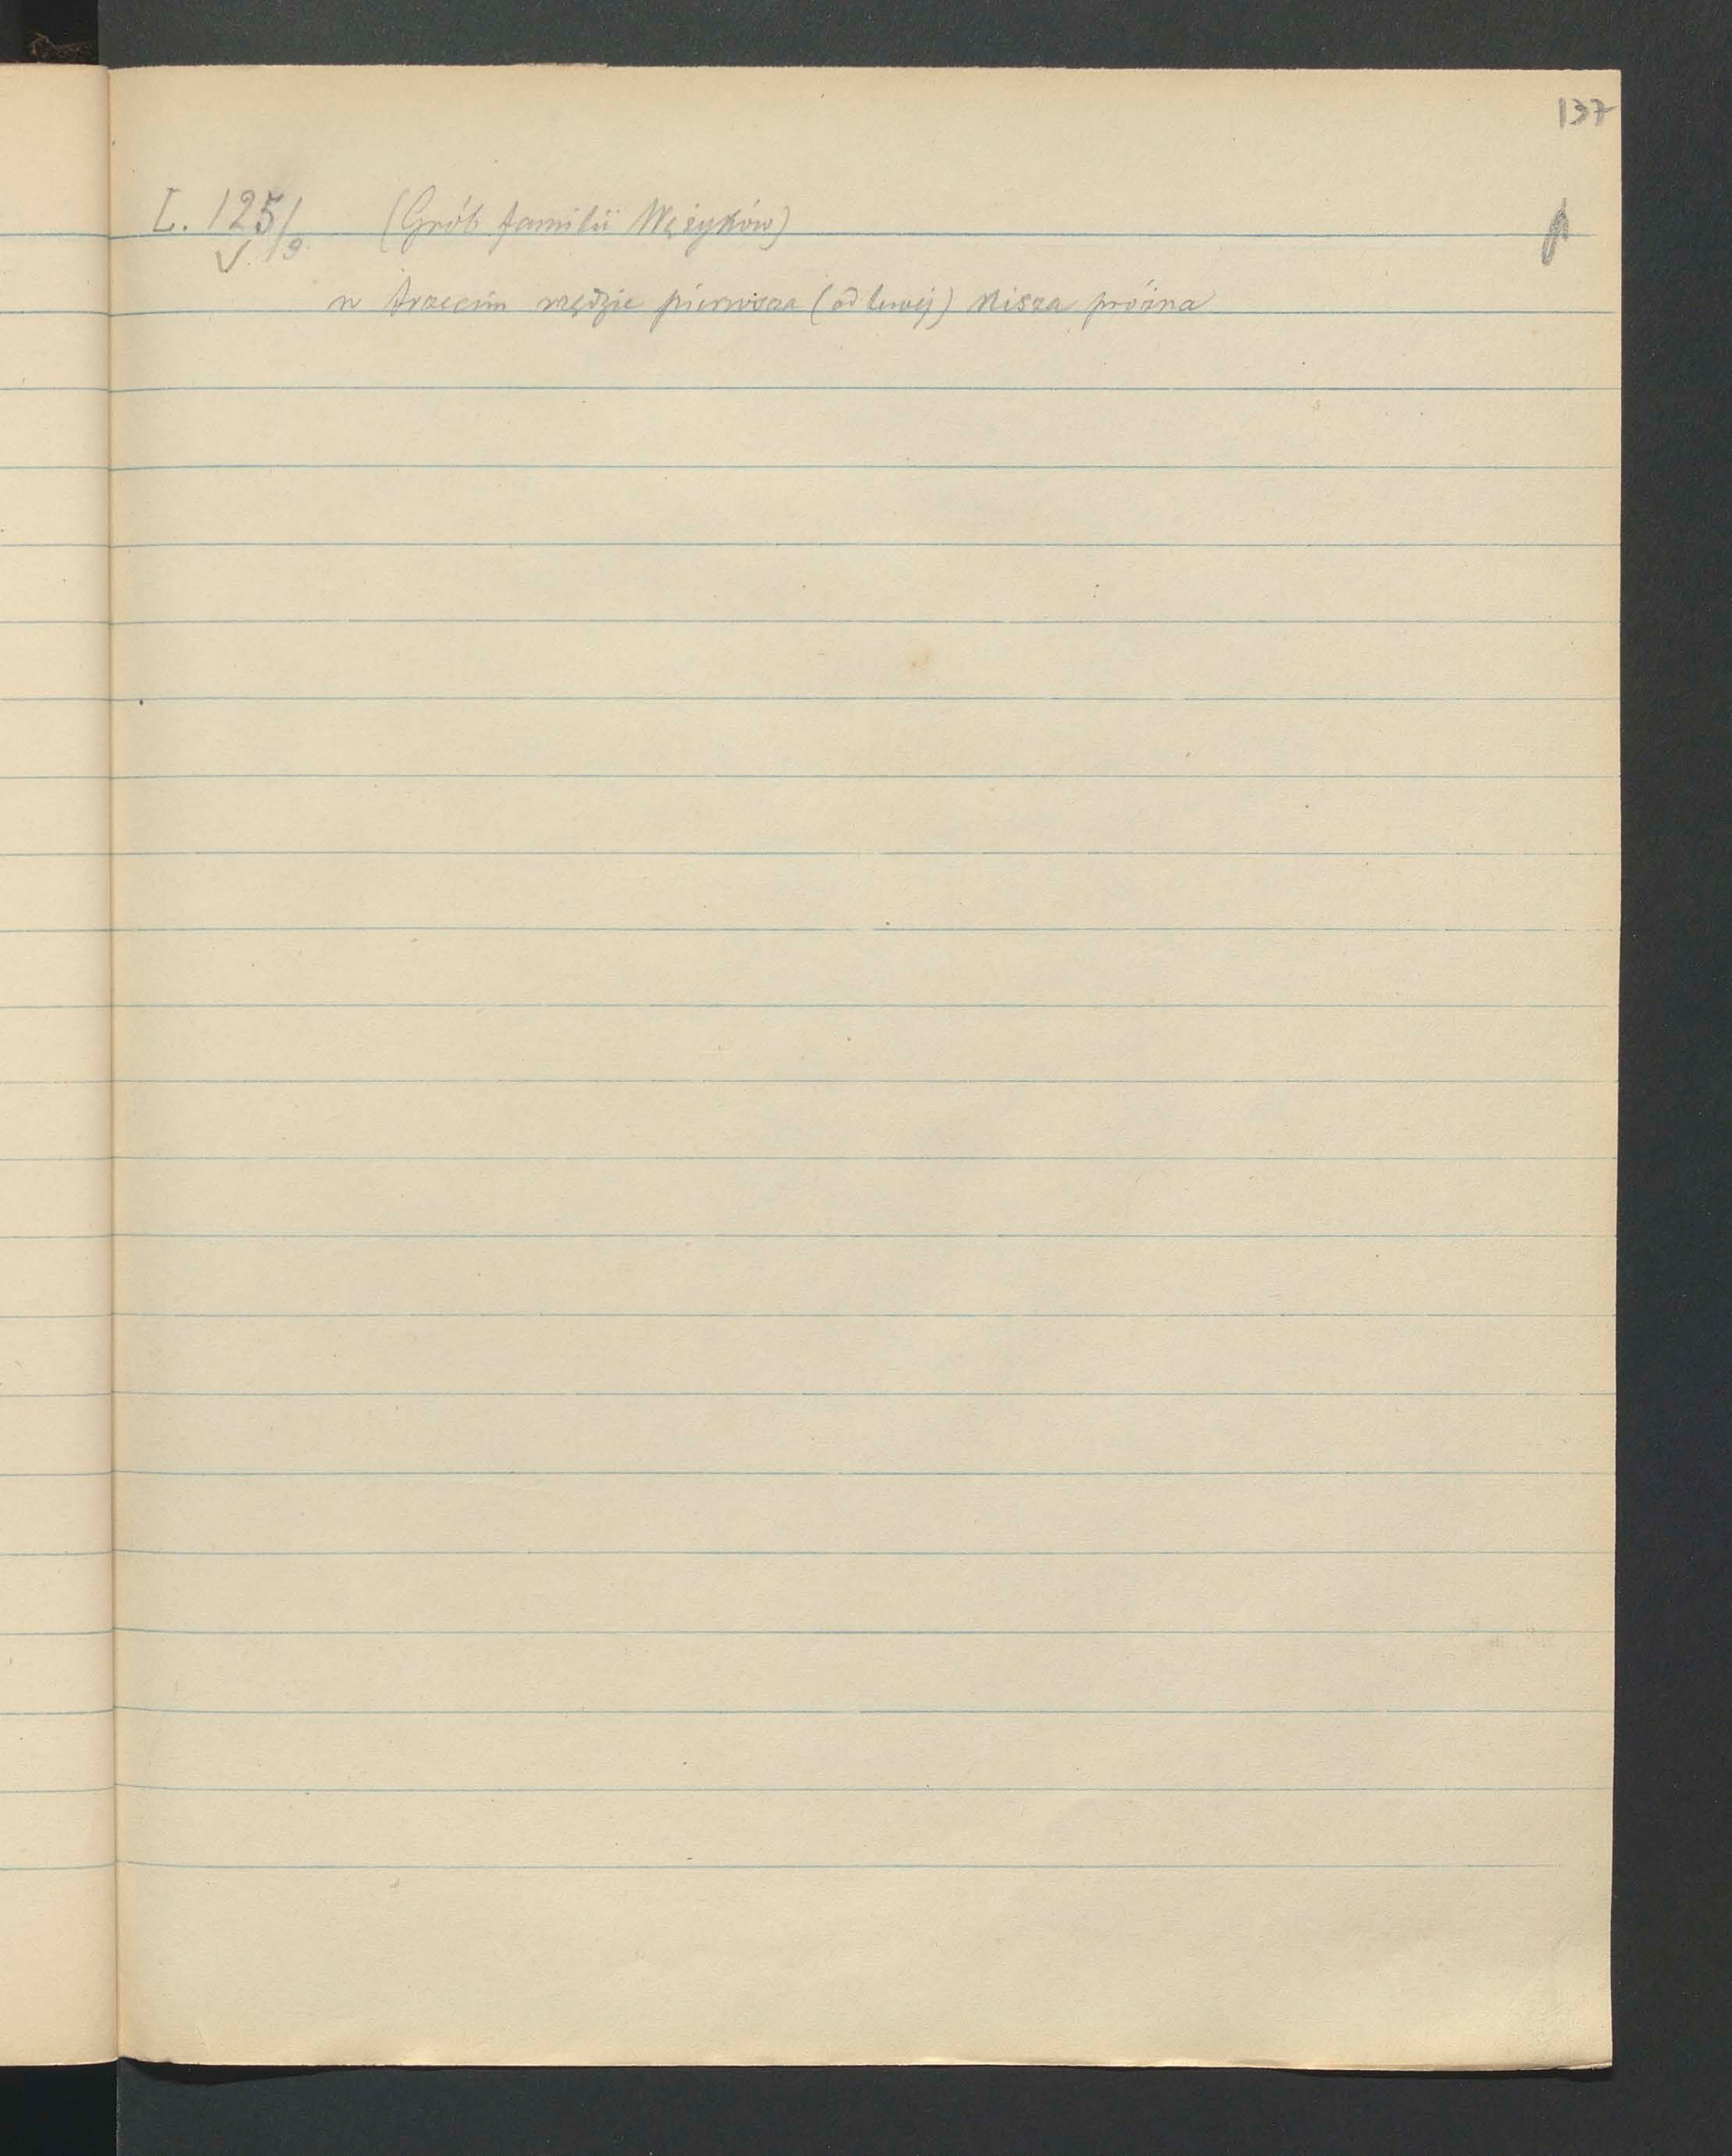 137
L. 125/9. (Grób familii Wężyków)
w trzecim rzędzie pierwsza (od lewej) nisza próżna